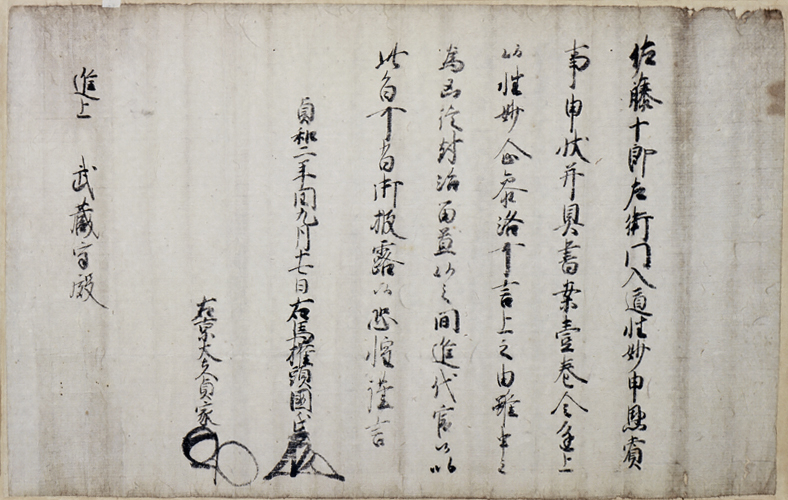 佐藤十郎左衛門入道性妙申恩賞
事申状并具書案壹巻令進上
候性妙企参洛可言上之由雖申之
為凶徒対治留置候之間進代官候以
此旨可有御披露候恐惶謹言
貞和二年閏九月十七日右馬權頭國氏
右京大夫貞家
進上 武蔵守殿